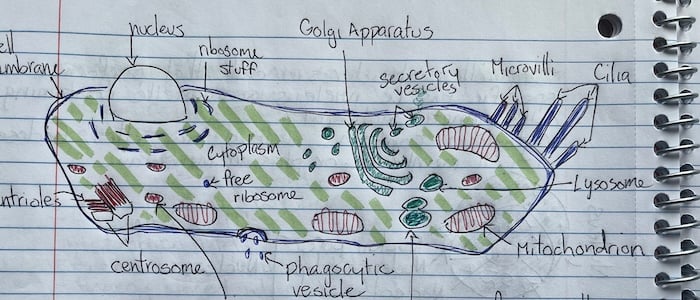 nucleus
Golgi Apparatus
ribosome
stuff
secretory
vesicles
Microvilli
Cilia
cytoplasm
free
ribosome
Lysosome
centrosome
phagocytic
vesicle
Mitochondrion